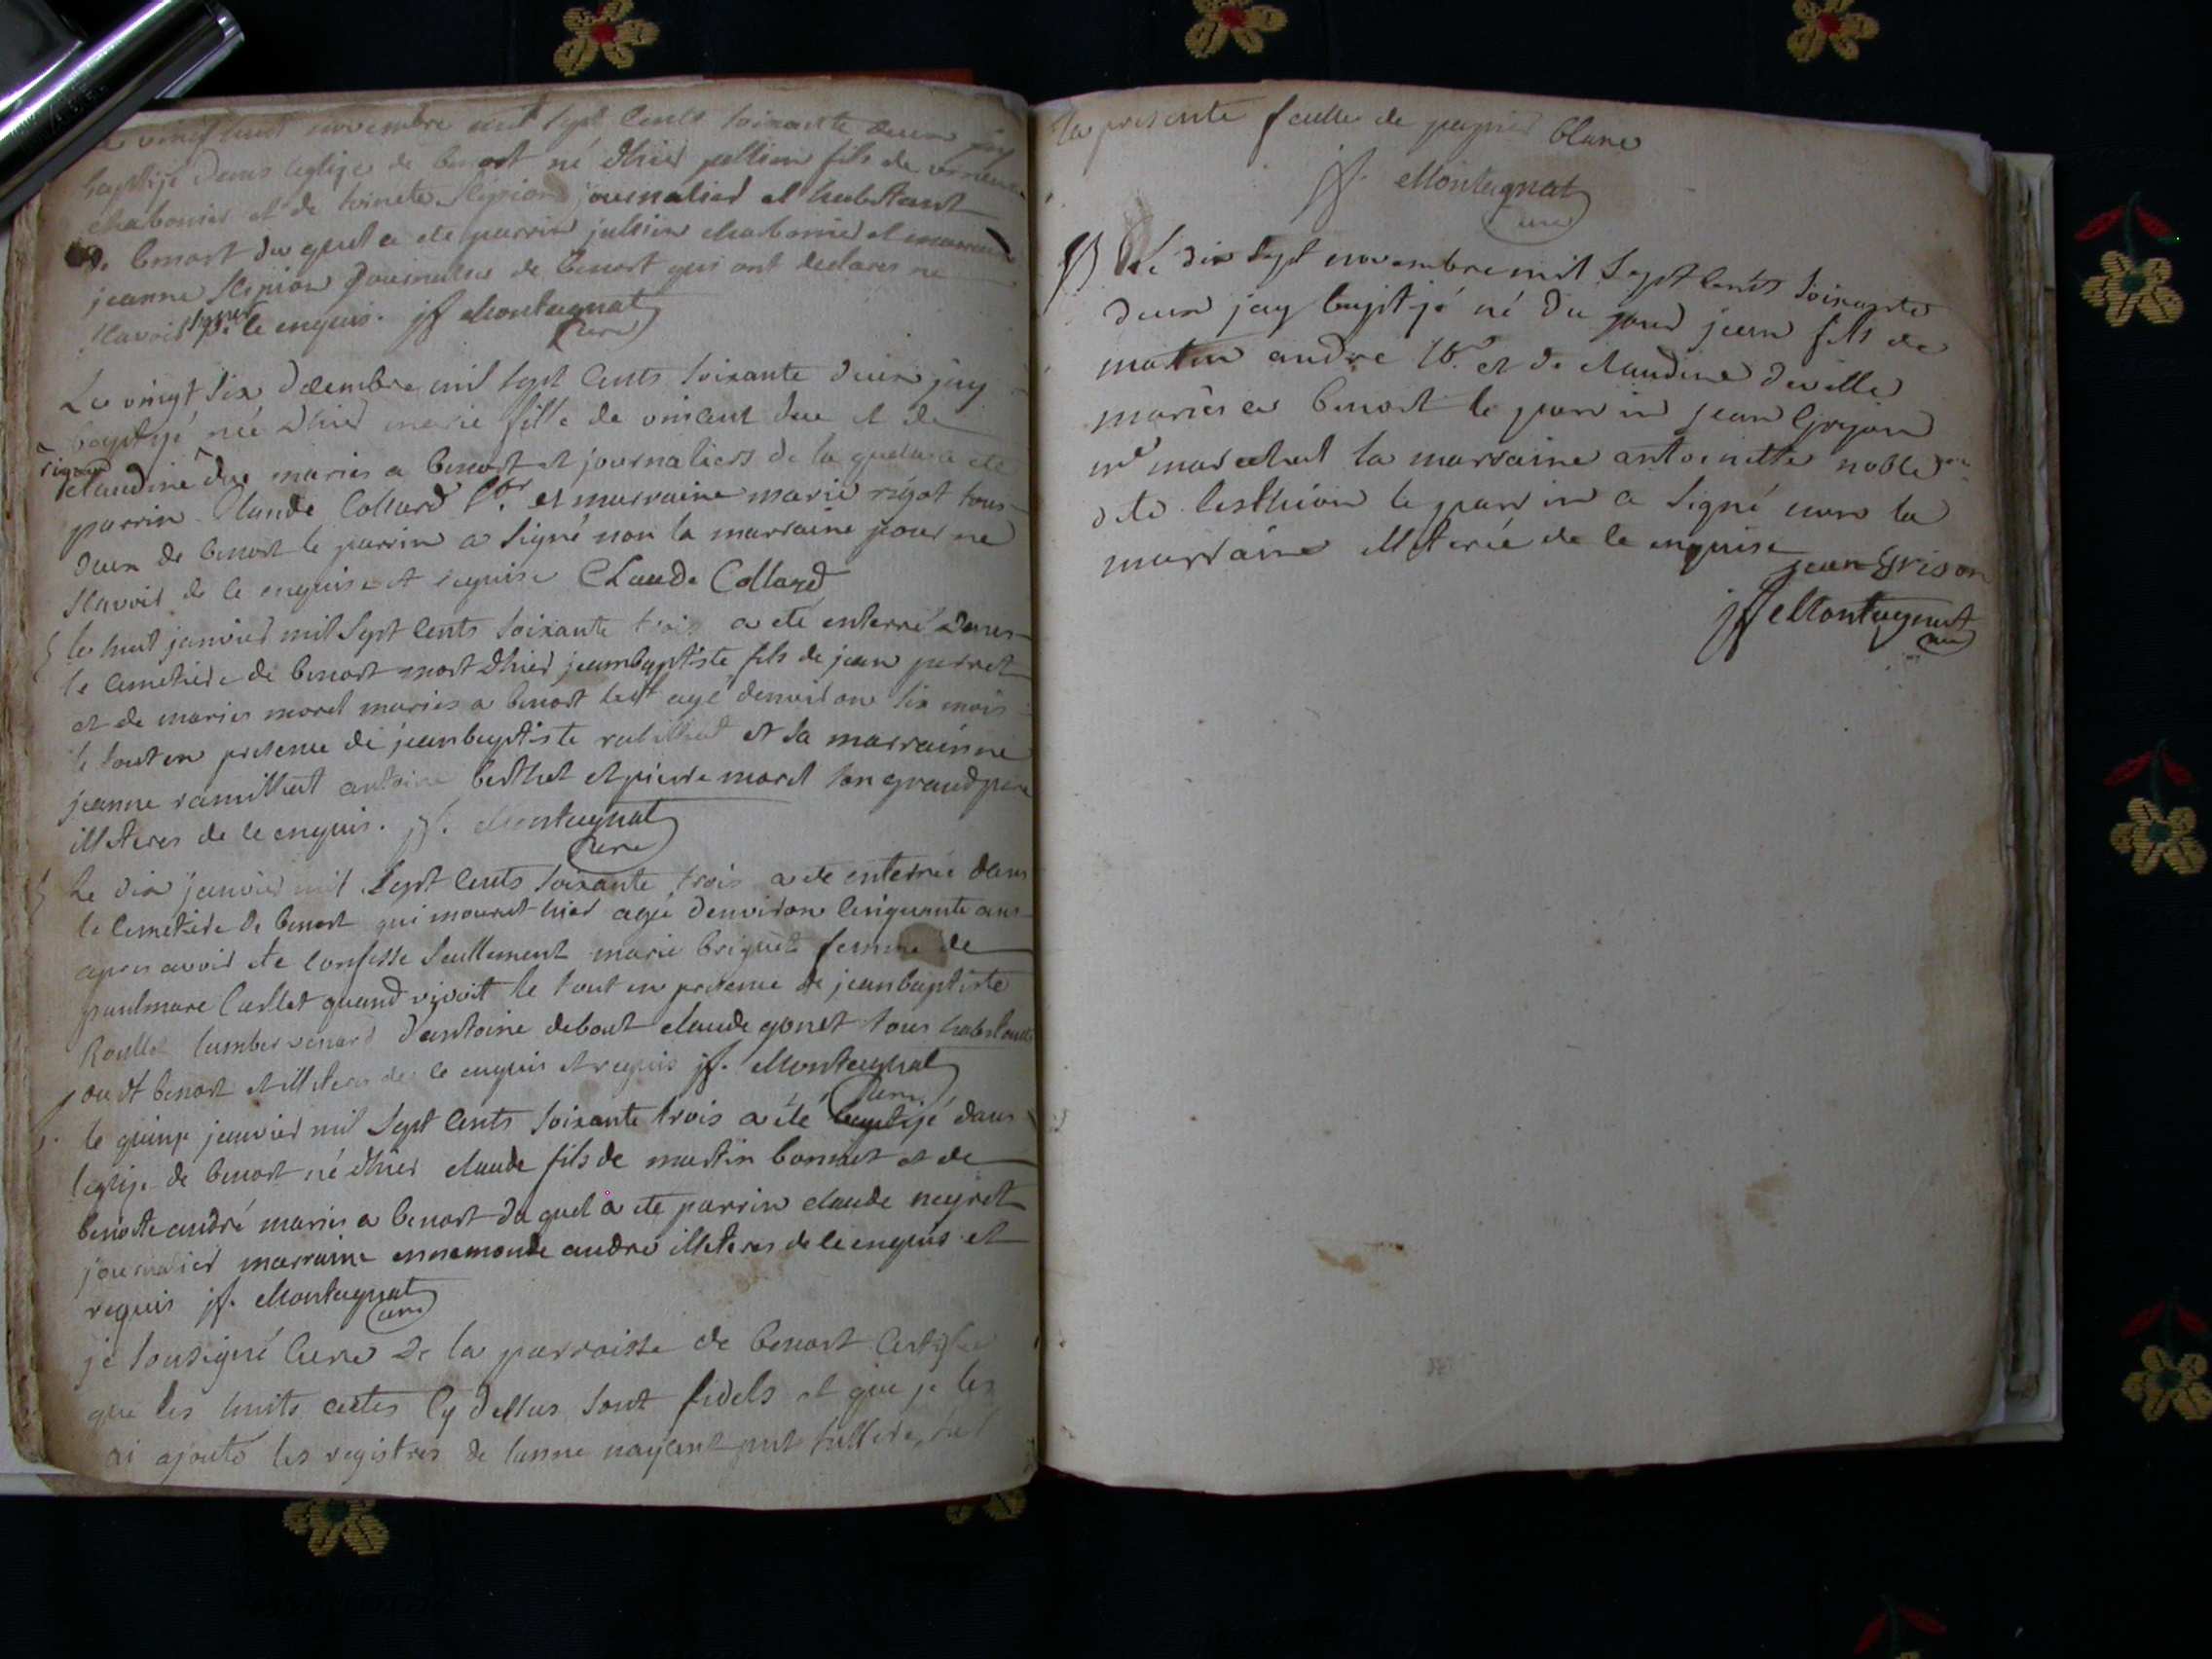 vingt huit novembre mil sept cents soixante deux jay
baptisé dans leglise de benost né dhier jullien fils de vincent
chabonier et de toinete scipion journalier et habitant
de benost du quel a ete parrin jullien chabonier et marraine
jeanne scipion journaliere de benost qui ont declarer ne
scavoir signer de le enquis. jf Montagnat
cure
Le vingt six decembre mil sept cents soixante deux jay
baptisé née dhier marie fille de vincent due et de
claudine rigaud due mariés a benost et journaliers de la quelle a ete
parrin Claude Collard lbr. et marraine marie rigot tous
deux de benost le parrin a signé non la marraine pour ne
scavoir de le enquise et requise CLaude Collard
le huit janvier mil sept cents soixante trois a eté enterré dans
le cemetiere de benost mort dhier jeanbaptiste fils de jean perret
et de marie morel mariés a benost agé denviron six mois
le tout en presence de jeanbaptiste et sa marrainne
jeanne ramilliet antoine berthet et pierre morel son grand pere
illiteres de le enquis. jf. Montagnat
cure
Le dix janvier mil sept cents soixante trois a ete enterrée dans
le cemetiere de benost qui mourut hier agée denviron cinquante ans
apres avoir ete confesse seullement marie briquet femme de
paulmare quand vivoit le tout en presence de jeanbaptiste
Roullet d'antoine debost claude gonet tous habitants
oudt benost et illiteres de le enquis et requis jf. Montagnat
cure
le quinze janvier mil sept cents soixante trois a été baptisé dans
leglise de benost né dhier claude fils de martin bonnet et de
benoite andré mariés a benost du quel a ete parrin claude neyret
journalier marraine ennemonde andré illiteres de le enquis et
requis jf. Montagnat
cure
je sousigné cure de la parroisse de benost certifie
que les huits actes cy dessus sont fidels et que je les
ai ajouté les registres de lanne nayant
la presente feulle de papier blanc
jf. Montagnat
cure
Le dix sept novembre mil sept cents soixante
deux jay baptisé né du jour jean fils de
martin andre lbr. et de claudine deville
mariés a benost le parrin jean Grison
me marechal la marraine antoinette noble
dite lesthion le parrin a signé non la
marraine illiterée de le enquise jean Grison
jf Montagnat
cure